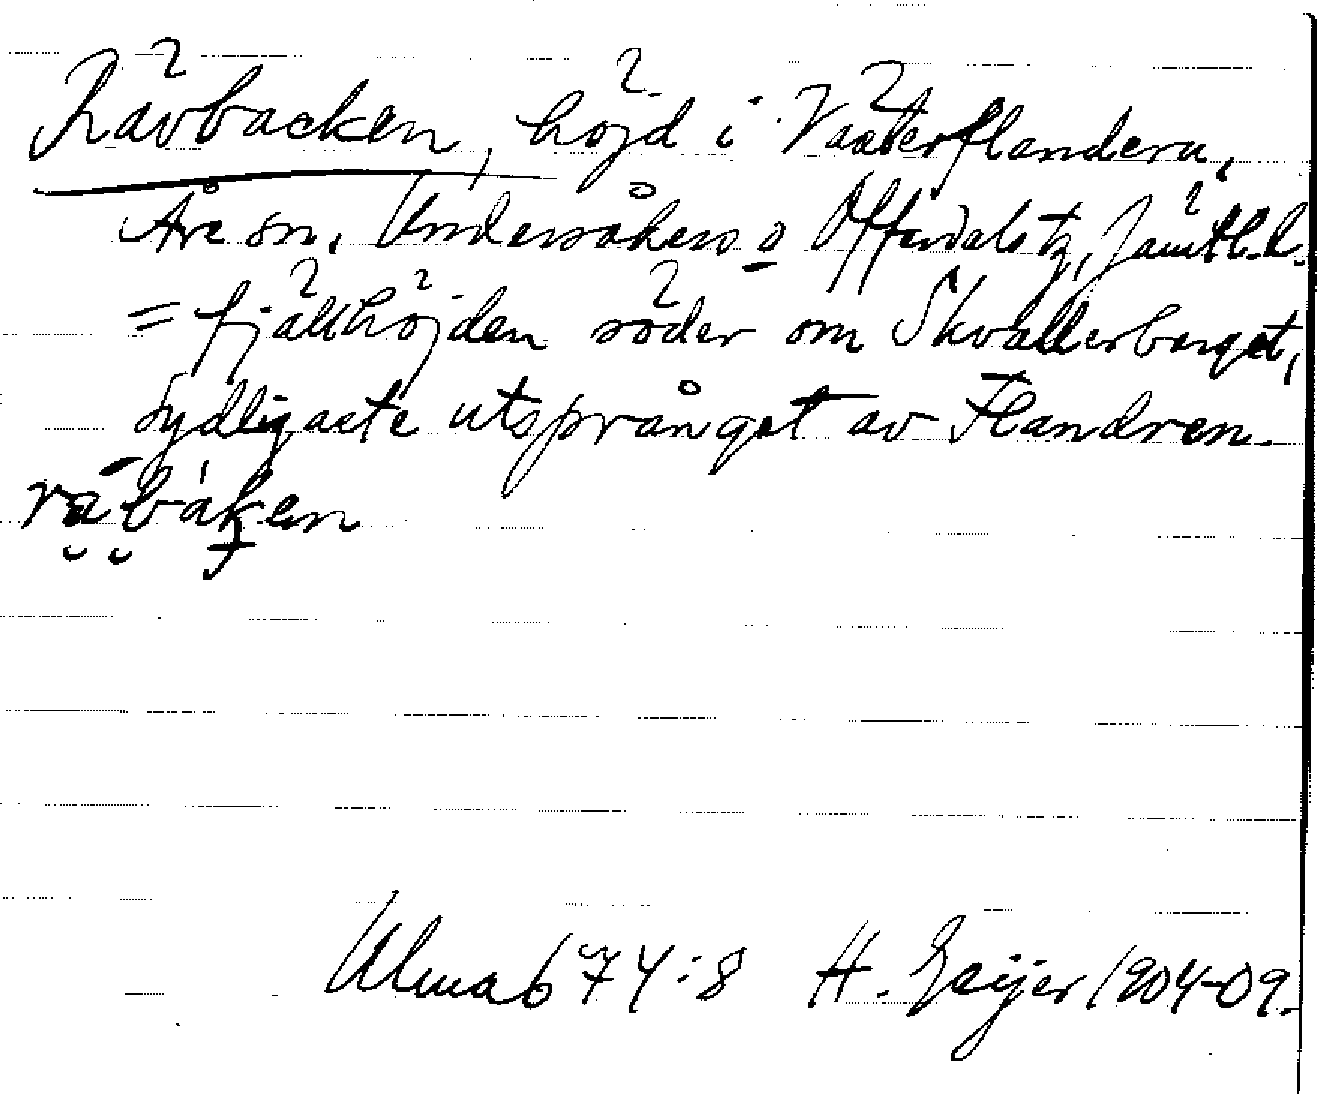 Rävbacken, höjd i Västerflandern,
Åre sn, Undersåkers o Offerdals tg, Jämtl. l.
= fjällhöjden söder om Skvallerberget,
sydligaste utsprånget av Flandren.
Ulma 674:8 H. Geijer 1904-09.